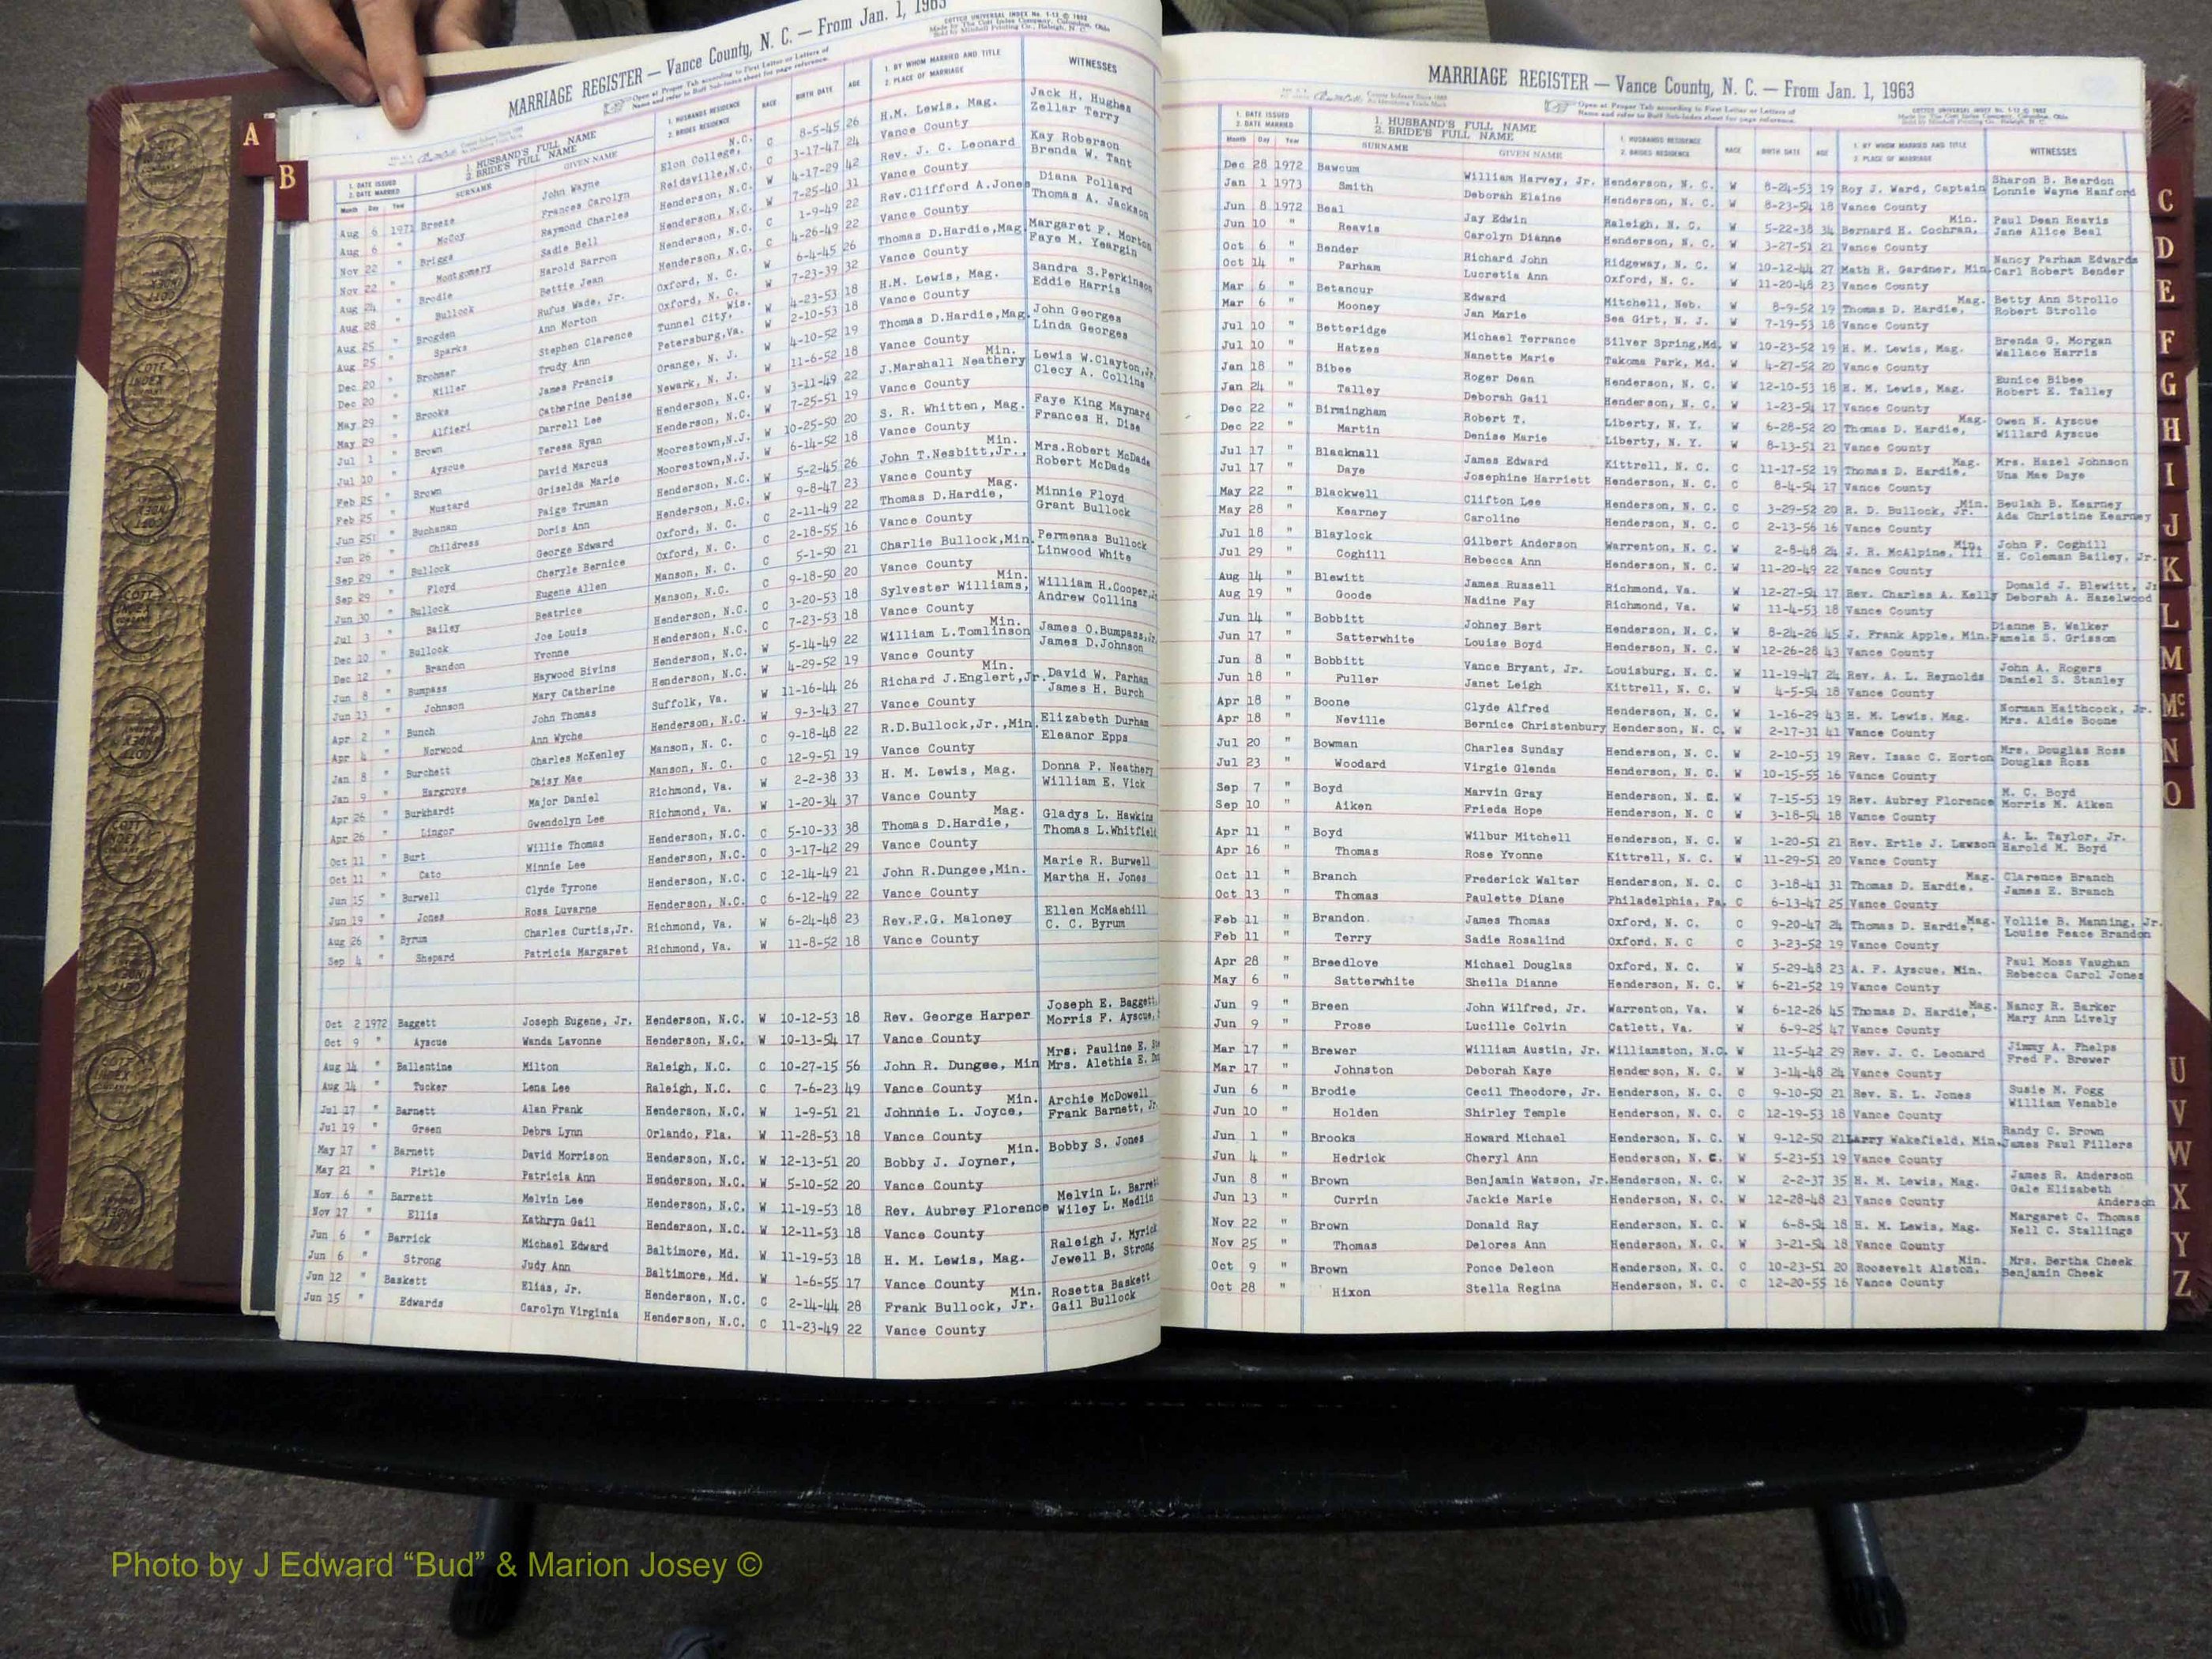 MARRIAGE REGISTER — Vance County, N. C. — From Jan. 1, 1963
Open at Proper Tab according to First Letter or Letters of
Name and refer to Buff Sub-Index sheet for page reference.
COTTCO UNIVERSAL INDEX No. 1-12 © 1962
1. DATE ISSUED
2. DATE MARRIED
1. HUSBAND'S FULL NAME
2. BRIDE'S FULL NAME
1. HUSBANDS RESIDENCE
2. BRIDES RESIDENCE
RACE BIRTH DATE AGE
1. BY WHOM MARRIED AND TITLE
2. PLACE OF MARRIAGE
WITNESSES
Month Day Year SURNAME GIVEN NAME
Aug 6 1971 Breeze John Wayne Elon College, N.C. C 8-5-45 26 H.M. Lewis, Mag. Jack H. Hughes
Aug 6 " McCoy Frances Carolyn Reidsville,N.C. C 3-17-47 24 Vance County Zellar Terry
Nov 22 " Briggs Raymond Charles Henderson, N.C. W 4-17-29 42 Rev. J. C. Leonard Kay Roberson
Nov 22 " Montgomery Sadie Bell Henderson, N.C. W 7-25-40 31 Vance County Brenda W. Tant
Aug 24 " Brodie Harold Barron Henderson, N.C. C 1-9-49 22 Rev.Clifford A.Jones Diana Pollard
Aug 28 " Bullock Bettie Jean Henderson, N.C. C 4-26-49 22 Vance County Thomas A. Jackson
Aug 25 " Brogden Rufus Wade, Jr. Oxford, N. C. W 6-4-45 26 Thomas D.Hardie,Mag. Margaret F. Morton
Aug 25 " Sparks Ann Morton Oxford, N. C. W 7-23-39 32 Vance County Faye M. Yeargin
Dec 20 " Brohmer Stephen Clarence Tunnel City, Wis. W 4-23-53 18 H.M. Lewis, Mag. Sandra S.Perkinson
Dec 20 " Miller Trudy Ann Petersburg,Va. W 2-10-53 18 Vance County Eddie Harris
May 29 " Brooks James Francis Orange, N. J. W 4-10-52 19 Thomas D.Hardie,Mag. John Georges
May 29 " Alfieri Catherine Denise Newark, N. J. W 11-6-52 18 Vance County Linda Georges
Jul 1 " Brown Darrell Lee Henderson, N.C. W 3-11-49 22 J.Marshall Neathery Min. Lewis W.Clayton,Jr.
Jul 10 " Ayscue Teresa Ryan Henderson, N.C. W 7-25-51 19 Vance County Clecy A. Collins
Feb 25 " Brown David Marcus Moorestown,N.J. W 10-25-50 20 S. R. Whitten, Mag. Faye King Maynard
Feb 25 " Mustard Griselda Marie Moorestown,N.J. W 6-14-52 18 Vance County Frances H. Dise
Jun 25 " Buchanan Paige Truman Henderson, N.C. W 5-2-45 26 John T.Nesbitt,Jr., Min. Mrs.Robert McDade
Jun 26 " Childress Doris Ann Henderson, N.C. W 9-8-47 23 Vance County Robert McDade
Sep 29 " Bullock George Edward Oxford, N. C. C 2-11-49 22 Thomas D.Hardie, Mag. Minnie Floyd
Sep 29 " Floyd Cheryle Bernice Oxford, N. C. C 2-18-55 16 Vance County Grant Bullock
Jun 30 " Bullock Eugene Allen Manson, N. C. C 5-1-50 21 Charlie Bullock,Min. Permenas Bullock
Jul 3 " Bailey Beatrice Manson, N.C. C 9-18-50 20 Vance County Linwood White
Dec 10 " Bullock Joe Louis Henderson, N.C. C 3-20-53 18 Sylvester Williams, Min. William H.Cooper,Jr.
Dec 12 " Brandon Yvonne Henderson, N.C. C 7-23-53 18 Vance County Andrew Collins
Jun 8 " Bumpass Haywood Bivins Henderson, N.C. W 5-14-49 22 William L.Tomlinson Min. James O.Bumpass,Jr.
Jun 13 " Johnson Mary Catherine Henderson, N.C. W 4-29-52 19 Vance County James D.Johnson
Apr 2 " Bunch John Thomas Suffolk, Va. W 11-16-44 26 Richard J.Englert,Jr. Min. David W. Parham
Apr 4 " Norwood Ann Wyche Henderson, N.C. W 9-3-43 27 Vance County James H. Burch
Jan 8 " Burchett Charles McKenley Manson, N. C. C 9-18-48 22 R.D.Bullock,Jr.,Min. Elizabeth Durham
Jan 9 " Hargrove Daisy Mae Manson, N. C. C 12-9-51 19 Vance County Eleanor Epps
Apr 26 " Burkhardt Major Daniel Richmond, Va. W 2-2-38 33 H. M. Lewis, Mag. Donna P. Neathery
Apr 26 " Lingor Gwendolyn Lee Richmond, Va. W 1-20-34 37 Vance County William E. Vick
Oct 11 " Burt Willie Thomas Henderson, N.C. C 5-10-33 38 Thomas D.Hardie, Mag. Gladys L. Hawkins
Oct 11 " Cato Minnie Lee Henderson, N.C. C 3-17-42 29 Vance County Thomas L.Whitfield
Jun 15 " Burwell Clyde Tyrone Henderson, N.C. C 12-14-49 21 John R.Dungee,Min. Marie R. Burwell
Jun 19 " Jones Rosa Luvarne Henderson, N.C. C 6-12-49 22 Vance County Martha H. Jones
Aug 26 " Byrum Charles Curtis,Jr. Richmond, Va. W 6-24-48 23 Rev.F.G. Maloney Ellen McMaehill
Sep 4 " Shepard Patricia Margaret Richmond, Va. W 11-8-52 18 Vance County C. C. Byrum
Oct 2 1972 Baggett Joseph Eugene, Jr. Henderson, N.C. W 10-12-53 18 Rev. George Harper Joseph E. Baggett
Oct 9 " Ayscue Wanda Lavonne Henderson, N.C. W 10-13-54 17 Vance County Morris F. Ayscue,
Aug 14 " Ballentine Milton Raleigh, N.C. C 10-27-15 56 John R. Dungee, Min Mrs. Pauline E.
Aug 14 " Tucker Lena Lee Raleigh, N.C. C 7-6-23 49 Vance County Mrs. Alethia E.
Jul 17 " Barnett Alan Frank Henderson, N.C. W 1-9-51 21 Johnnie L. Joyce, Min. Archie McDowell
Jul 19 " Green Debra Lynn Orlando, Fla. W 11-28-53 18 Vance County Frank Barnett, Jr.
May 17 " Barnett David Morrison Henderson, N.C. W 12-13-51 20 Bobby J. Joyner, Min. Bobby S. Jones
May 21 " Pirtle Patricia Ann Henderson, N.C. W 5-10-52 20 Vance County
Nov 6 " Barrett Melvin Lee Henderson, N.C. W 11-19-53 18 Rev. Aubrey Florence Melvin L. Barrett
Nov 17 " Ellis Kathryn Gail Henderson, N.C. W 12-11-53 18 Vance County Wiley L. Medlin
Jun 6 " Barrick Michael Edward Baltimore, Md. W 11-19-53 18 H. M. Lewis, Mag. Raleigh J. Myrick
Jun 6 " Strong Judy Ann Baltimore, Md. W 1-6-55 17 Vance County Jewell B. Strong
Jun 12 " Baskett Elias, Jr. Henderson, N.C. C 2-14-44 28 Frank Bullock, Jr. Min. Rosetta Baskett
Jun 15 " Edwards Carolyn Virginia Henderson, N.C. C 11-23-49 22 Vance County Gail Bullock
MARRIAGE REGISTER — Vance County, N. C. — From Jan. 1, 1963
Open at Proper Tab according to First Letter or Letters of
Name and refer to Buff Sub-Index sheet for page reference.
COTTCO UNIVERSAL INDEX No. 1-12 © 1962
1. DATE ISSUED
2. DATE MARRIED
1. HUSBAND'S FULL NAME
2. BRIDE'S FULL NAME
1. HUSBANDS RESIDENCE
2. BRIDES RESIDENCE
RACE BIRTH DATE AGE
1. BY WHOM MARRIED AND TITLE
2. PLACE OF MARRIAGE
WITNESSES
Month Day Year SURNAME GIVEN NAME
Dec 28 1972 Bawcum William Harvey, Jr. Henderson, N. C. W 8-24-53 19 Roy J. Ward, Captain Sharon B. Reardon
Jan 1 1973 Smith Deborah Elaine Henderson, N. C. W 8-23-54 18 Vance County Lonnie Wayne Hanford
Jun 8 1972 Beal Jay Edwin Raleigh, N. C. W 5-22-38 34 Bernard H. Cochran, Min. Paul Dean Reavis
Jun 10 " Reavis Carolyn Dianne Henderson, N. C. W 3-27-51 21 Vance County Jane Alice Beal
Oct 6 " Bender Richard John Ridgeway, N. C. W 10-12-44 27 Math R. Gardner, Min. Nancy Parham Edwards
Oct 14 " Parham Lucretia Ann Oxford, N. C. W 11-20-48 23 Vance County Carl Robert Bender
Mar 6 " Betancur Edward Mitchell, Neb. W 8-9-52 19 Thomas D. Hardie, Mag. Betty Ann Strollo
Mar 6 " Mooney Jan Marie Sea Girt, N. J. W 7-19-53 18 Vance County Robert Strollo
Jul 10 " Betteridge Michael Terrance Silver Spring,Md. W 10-23-52 19 H. M. Lewis, Mag. Brenda G. Morgan
Jul 10 " Hatzes Nanette Marie Takoma Park, Md. W 4-27-52 20 Vance County Wallace Harris
Jan 18 " Bibee Roger Dean Henderson, N. C. W 12-10-53 18 H. M. Lewis, Mag. Eunice Bibee
Jan 24 " Talley Deborah Gail Henderson, N. C. W 1-23-54 17 Vance County Robert E. Talley
Dec 22 " Birmingham Robert T. Liberty, N. Y. W 6-28-52 20 Thomas D. Hardie, Mag. Owen N. Ayscue
Dec 22 " Martin Denise Marie Liberty, N. Y. W 8-13-51 21 Vance County Willard Ayscue
Jul 17 " Blacknall James Edward Kittrell, N. C. C 11-17-52 19 Thomas D. Hardie, Mag. Mrs. Hazel Johnson
Jul 17 " Daye Josephine Harriett Henderson, N. C. C 8-4-54 17 Vance County Una Mae Daye
May 22 " Blackwell Clifton Lee Henderson, N. C. C 3-29-52 20 R. D. Bullock, Jr. Min. Beulah B. Kearney
May 28 " Kearney Caroline Henderson, N. C. C 2-13-56 16 Vance County Ada Christine Kearney
Jul 18 " Blaylock Gilbert Anderson Warrenton, N. C. W 2-8-48 24 J. R. McAlpine, III Min. John F. Coghill
Jul 29 " Coghill Rebecca Ann Henderson, N. C. W 11-20-49 22 Vance County H. Coleman Bailey, Jr.
Aug 14 " Blewitt James Russell Richmond, Va. W 12-27-54 17 Rev. Charles A. Kelly Donald J. Blewitt, Jr
Aug 19 " Goode Nadine Fay Richmond, Va. W 11-4-53 18 Vance County Deborah A. Hazelwood
Jun 14 " Bobbitt Johney Bert Henderson, N. C. W 8-24-26 45 J. Frank Apple, Min. Dianne B. Walker
Jun 17 " Satterwhite Louise Boyd Henderson, N. C. W 12-26-28 43 Vance County Pamela S. Grissom
Jun 8 " Bobbitt Vance Bryant, Jr. Louisburg, N. C. W 11-19-47 24 Rev. A. L. Reynolds John A. Rogers
Jun 18 " Fuller Janet Leigh Kittrell, N. C. W 4-5-54 18 Vance County Daniel S. Stanley
Apr 18 " Boone Clyde Alfred Henderson, N. C. W 1-16-29 43 H. M. Lewis, Mag. Norman Haithcock, Jr.
Apr 18 " Neville Bernice Christenbury Henderson, N. C. W 2-17-31 41 Vance County Mrs. Aldie Boone
Jul 20 " Bowman Charles Sunday Henderson, N. C. W 2-10-53 19 Rev. Isaac C. Horton Mrs. Douglas Ross
Jul 23 " Woodard Virgie Glenda Henderson, N. C. W 10-15-55 16 Vance County Douglas Ross
Sep 7 " Boyd Marvin Gray Henderson, N. C. W 7-15-53 19 Rev. Aubrey Florence M. C. Boyd
Sep 10 " Aiken Frieda Hope Henderson, N. C W 3-18-54 18 Vance County Morris M. Aiken
Apr 11 " Boyd Wilbur Mitchell Henderson, N. C. W 1-20-51 21 Rev. Ertle J. Lawson A. L. Taylor, Jr.
Apr 16 " Thomas Rose Yvonne Kittrell, N. C. W 11-29-51 20 Vance County Harold M. Boyd
Oct 11 " Branch Frederick Walter Henderson, N. C. C 3-18-41 31 Thomas D. Hardie, Mag. Clarence Branch
Oct 13 " Thomas Paulette Diane Philadelphia, Pa. C 6-13-47 25 Vance County James E. Branch
Feb 11 " Brandon James Thomas Oxford, N. C. C 9-20-47 24 Thomas D. Hardie, Mag. Vollie B. Manning, Jr.
Feb 11 " Terry Sadie Rosalind Oxford. N. C C 3-23-52 19 Vance County Louise Peace Brandon
Apr 28 " Breedlove Michael Douglas Oxford, N. C. W 5-29-48 23 A. F. Ayscue, Min. Paul Moss Vaughan
May 6 " Satterwhite Sheila Dianne Henderson, N. C. W 6-21-52 19 Vance County Rebecca Carol Jones
Jun 9 " Breen John Wilfred, Jr. Warrenton, Va. W 6-12-26 45 Thomas D. Hardie, Mag. Nancy R. Barker
Jun 9 " Prose Lucille Colvin Catlett, Va. W 6-9-25 47 Vance County Mary Ann Lively
Mar 17 " Brewer William Austin, Jr. Williamston, N.C. W 11-5-42 29 Rev. J. C. Leonard Jimmy A. Phelps
Mar 17 " Johnston Deborah Kaye Henderson, N. C. W 3-14-48 24 Vance County Fred F. Brewer
Jun 6 " Brodie Cecil Theodore, Jr. Henderson, N. C. C 9-10-50 21 Rev. E. L. Jones Susie M. Fogg
Jun 10 " Holden Shirley Temple Henderson, N. C. C 12-19-53 18 Vance County William Venable
Jun 1 " Brooks Howard Michael Henderson, N. C. W 9-12-50 21 Larry Wakefield, Min. Randy C. Brown
Jun 4 " Hedrick Cheryl Ann Henderson, N. C. W 5-23-53 19 Vance County James Paul Fillers
Jun 8 " Brown Benjamin Watson, Jr. Henderson, N. C. W 2-2-37 35 H. M. Lewis, Mag. James R. Anderson
Jun 13 " Currin Jackie Marie Henderson, N. C. W 12-28-48 23 Vance County Gale Elizabeth Anderson
Nov 22 " Brown Donald Ray Henderson, N. C. W 6-8-54 18 H. M. Lewis, Mag. Margaret C. Thomas
Nov 25 " Thomas Delores Ann Henderson, N. C. W 3-21-54 18 Vance County Nell C. Stallings
Oct 9 " Brown Ponce Deleon Henderson, N. C. C 10-23-51 20 Roosevelt Alston, Min. Mrs. Bertha Cheek
Oct 28 " Hixon Stella Regina Henderson, N. C. C 12-20-55 16 Vance County Benjamin Cheek
A
B
C
D
E
F
G
H
I
J
K
L
M
Mc
N
O
U
V
W
X
Y
Z
Photo by J Edward “Bud” & Marion Josey ©